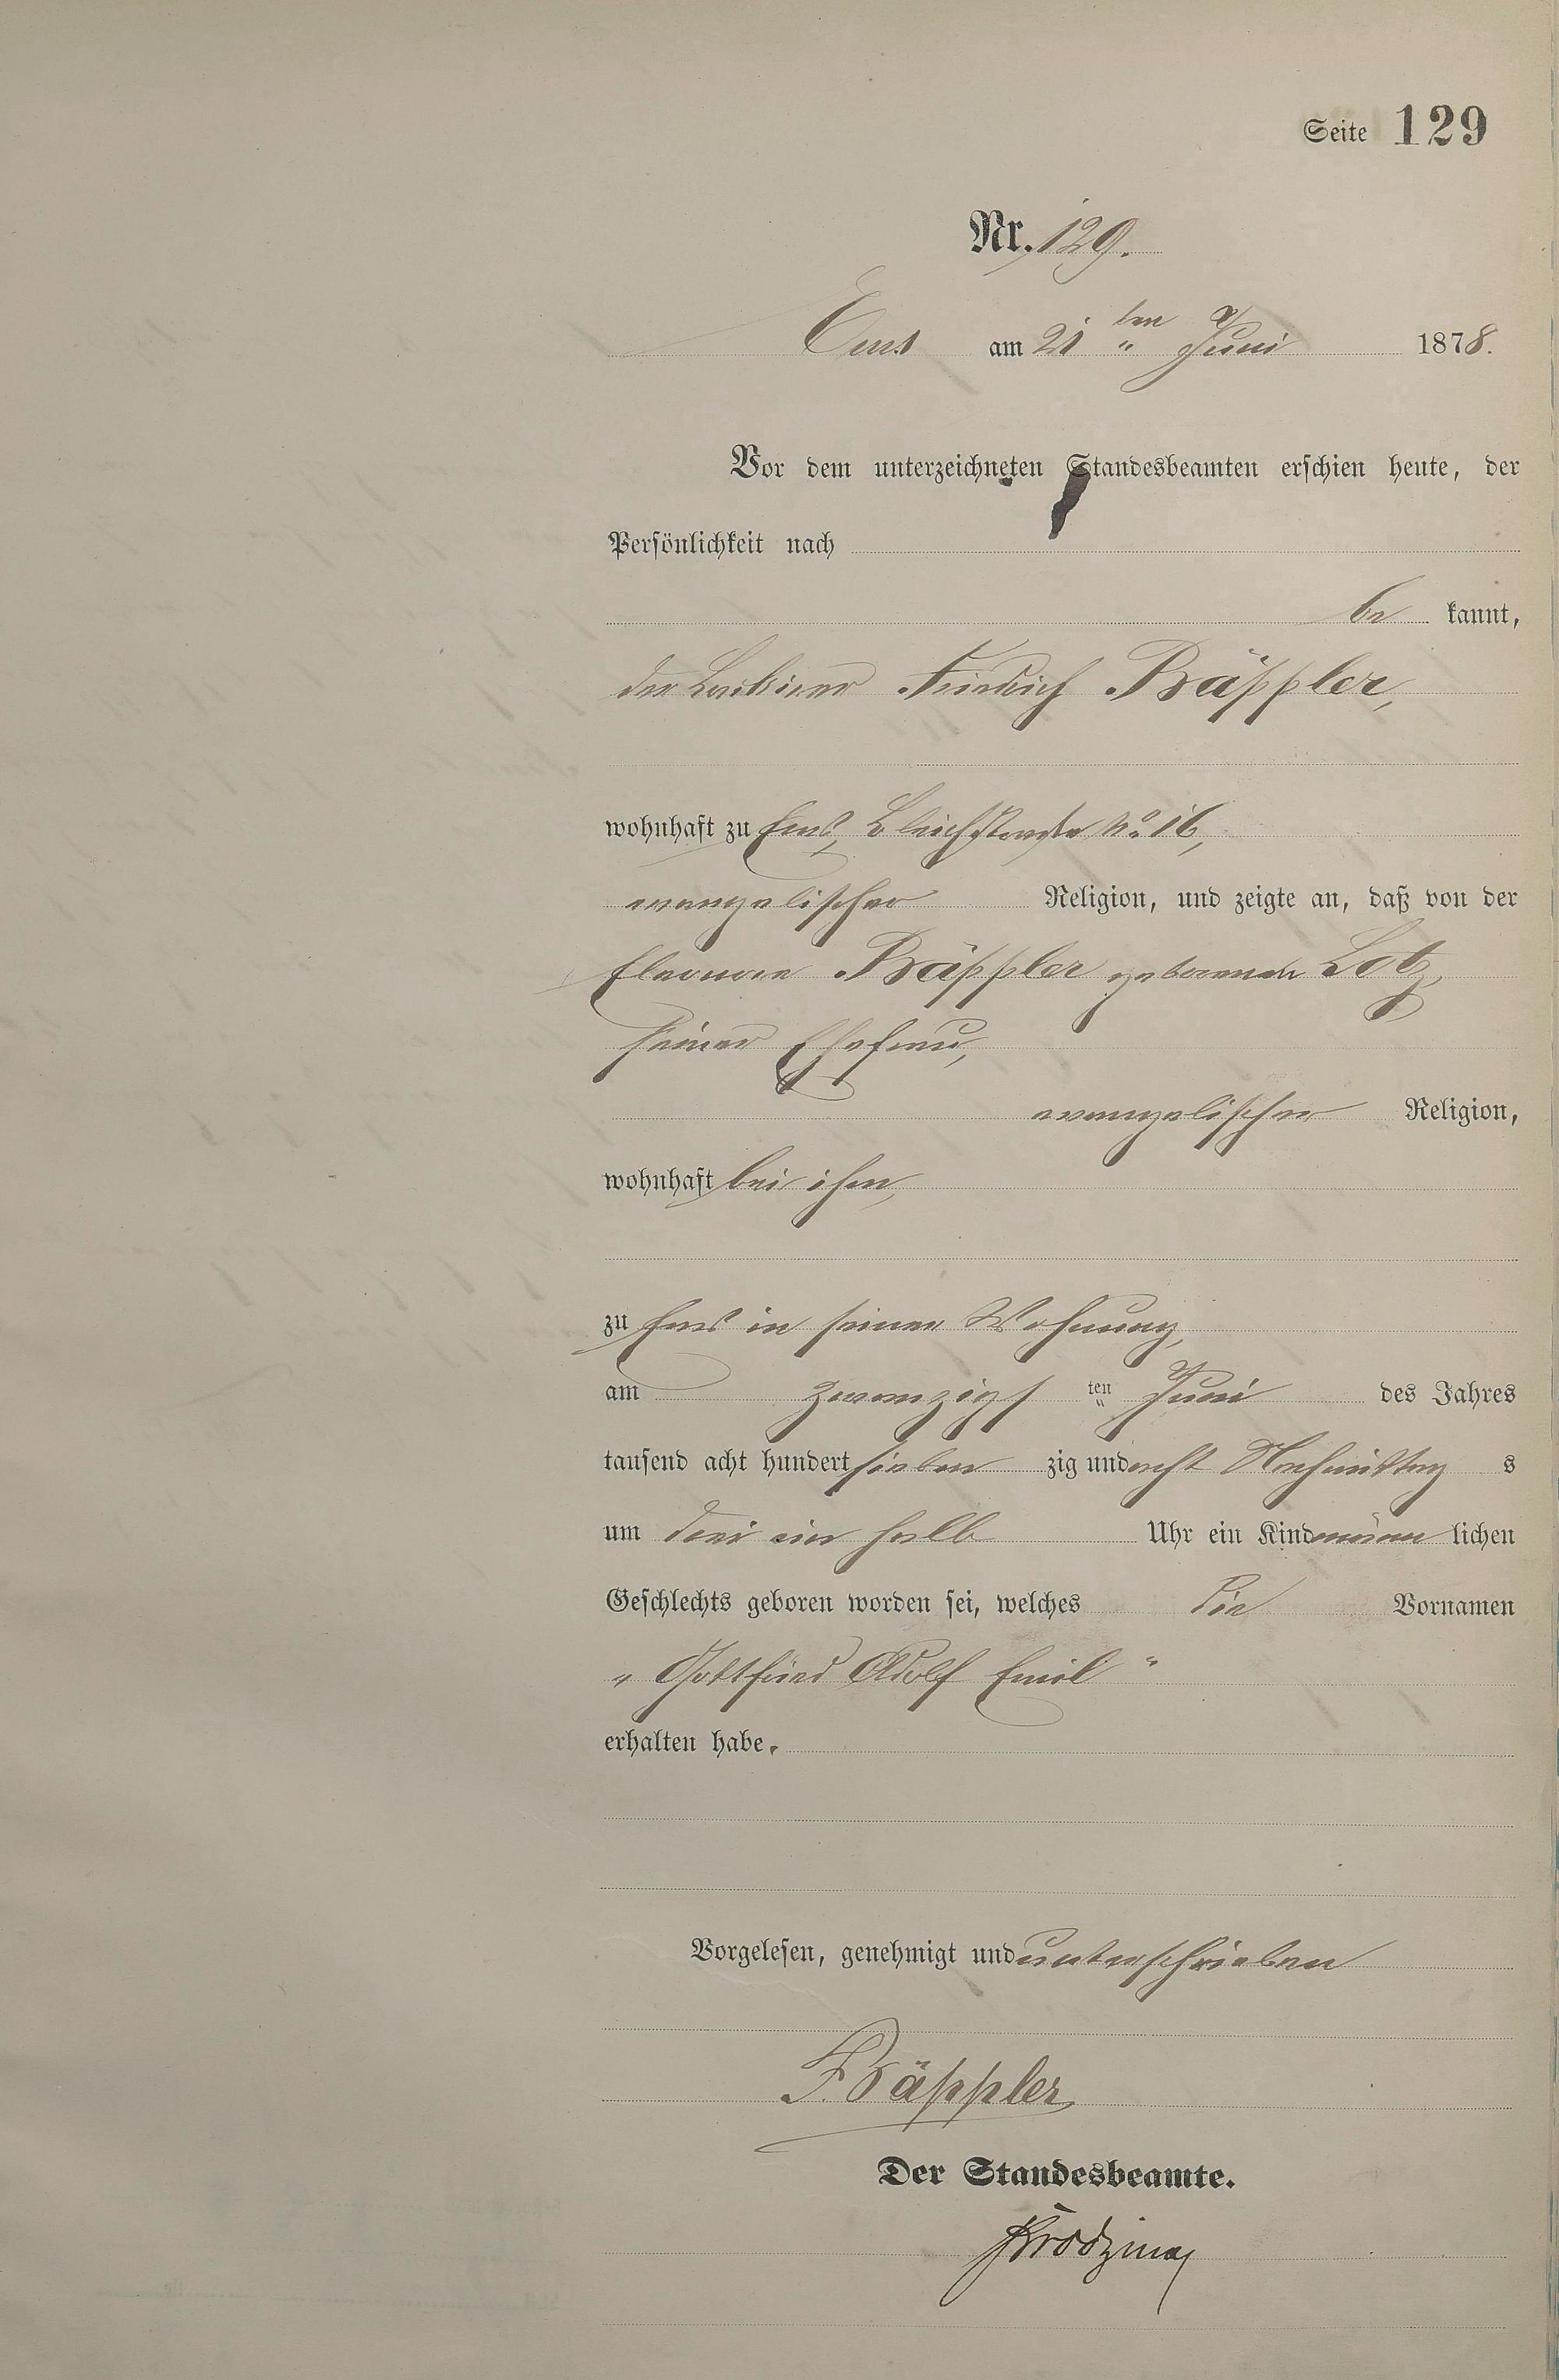 Seite 129
Nr. 129.
Ems am 21ten Juni 1878.
Vor dem unterzeichneten Standesbeamten erschien heute, der
Persönlichkeit nach
be kannt,
der Friedrich Bäppler,
wohnhaft zu Ems, Bleichstraße No. 16,
evangelischer Religion, und zeigte an, daß von der
Eleonore Bäppler geborenen Lotz,
seiner Ehefrau,
evangelischer Religion,
wohnhaft bei ihm,
zu Ems in seiner Wohnung,
am zwanzigs ten Juni des Jahres
tausend acht hundert sieben zig und acht Nachmittag s
um drei ein halb Uhr ein Kind männ lichen
Geschlechts geboren worden sei, welches die Vornamen
„Gottfried Adolf Emil"
erhalten habe.
Vorgelesen, genehmigt und unterschrieben
F. Bäppler
Der Standesbeamte.